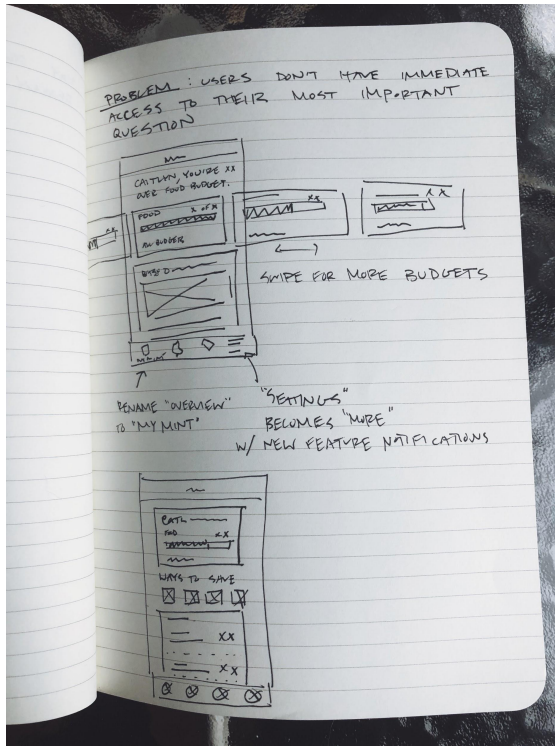 PROBLEM : USERS DON'T HAVE IMMEDIATE
ACCESS TO THEIR MOST IMPORTANT
QUESTION
CAITLIN, YOU'RE XX
OVER FOOD BUDGET.
FOOD X OF X
ALL BUDGETS
XX
XX
XX
SWIPE FOR MORE BUDGETS
RENAME "OVERVIEW"
TO "MY MINT"
"SETTINGS"
BECOMES "MORE"
W/ NEW FEATURE NOTIFICATIONS
CATL
FOOD XX
WAYS TO SAVE
XX
XX